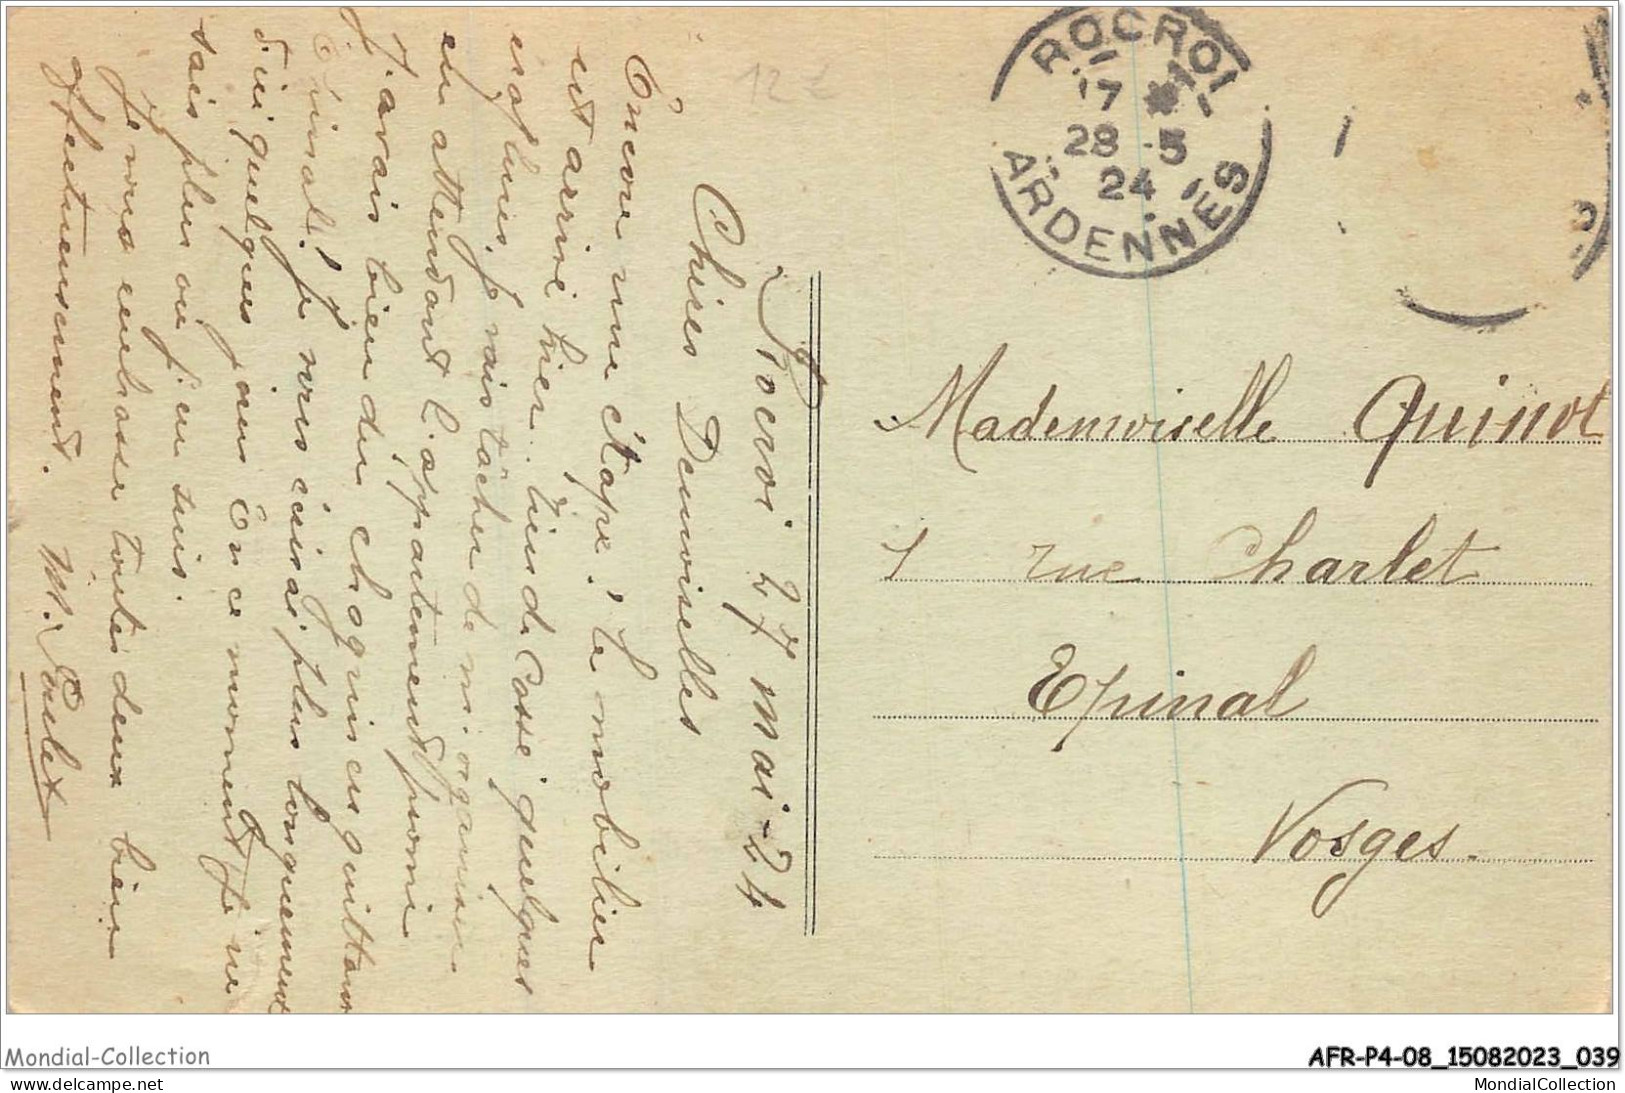 Rocroi 27 Mai - 24
Chères Demoiselles
Encore une étape ! le mobilier
est arrivé hier. rien de cassé quelques
éraflures, je vais tâcher de m'organiser
en attendant l'appartement promi
J'avais bien du chagrin en quittant
Epinal ! Je vous écrirai plus longuement
d'ici quelques jours En ce moment je ne
sais plus où j'en suis.
Je vous embrasse toutes deux bien
affectueusement. M.
ROCROI
17 *
28 - 5
24
ARDENNES
Mademoiselle Quinot
1 rue Charlet
Epinal
Vosges.
12 €
Mondial-Collection
AFR-P4-08_15082023_039
delcampe.net
MondialCollection